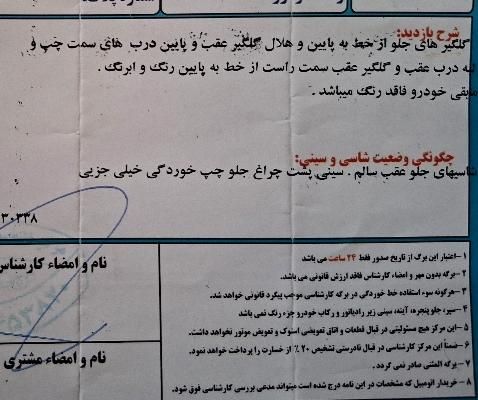 شرح بازدید:
گلگیر های جلو از خط به پایین و هلال گلگیر عقب و پایین درب های سمت چپ و
لبه درب عقب و گلگیر عقب سمت راست از خط به پایین رنگ و ابرنگ .
مابقی خودرو فاقد رنگ میباشد .
چگونگی وضعیت شاسی و سینی:
شاسیهای جلو عقب سالم . سینی پشت چراغ جلو چپ خوردگی خیلی جزیی
۳۰۳۳۸
نام و امضاء کارشناس
نام و امضاء مشتری
۱-اعتبار این برگ از تاریخ صدور فقط ۲۴ ساعت می باشد
۲-برگه بدون مهر و امضاء کارشناس فاقد ارزش قانونی می باشد.
۳-هرگونه سوء استفاده خط خوردگی در برگه کارشناسی موجب پیگرد قانونی خواهد شد.
۴-سپر، جلو پنجره، آینه، سینی زیر رادیاتور و رکاب خودرو جزء رنگ نمی باشد
۵-این مرکز هیچ مسئولیتی در قبال قطعات و اتاق تعویضی استوک و تعویض موتور نخواهد داشت.
۶-ضمناً این مرکز کارشناسی در قبال نادرستی تشخیص ۲۰٪ از خسارت را پرداخت خواهد نمود.
۷-برگه المثنی صادر نمی گردد .
۸-خریدار اتومبیل که مشخصات در این نامه درج شده است میتواند مدعی بررسی کارشناسی فوق شود.